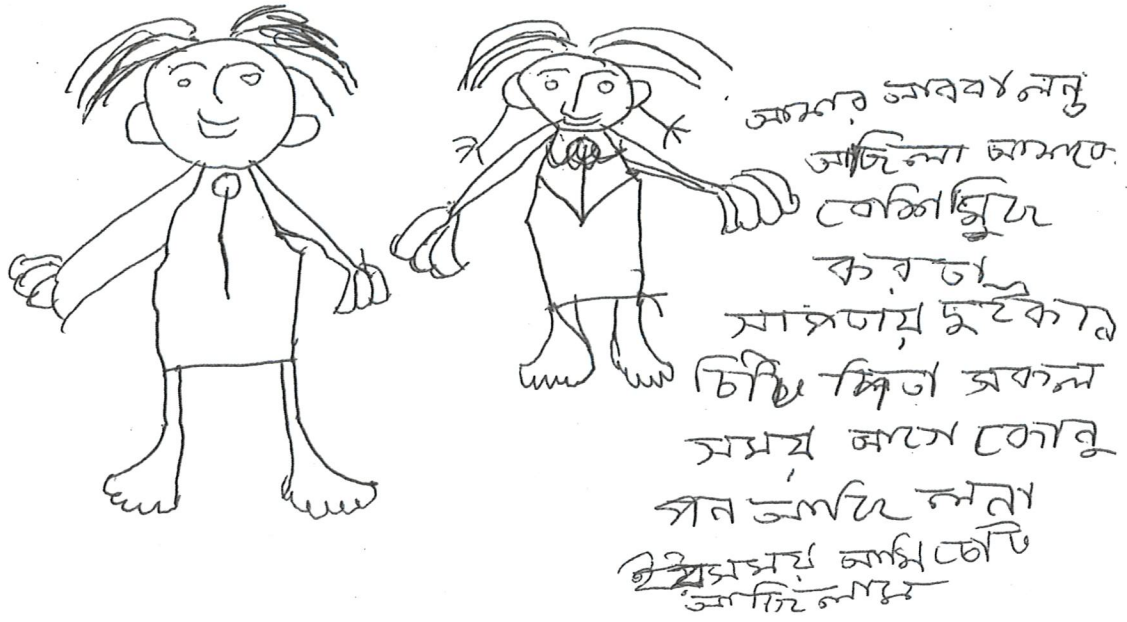 আমার আববা লন্ড
আছিলা আমারে
বেশি মিছ
করতা
সাপতায় দুইবার
চিঠি দিতা সকল
সময় আগে কোনু
পন আছিল না
সময় আমি ছোট
আছিলাম